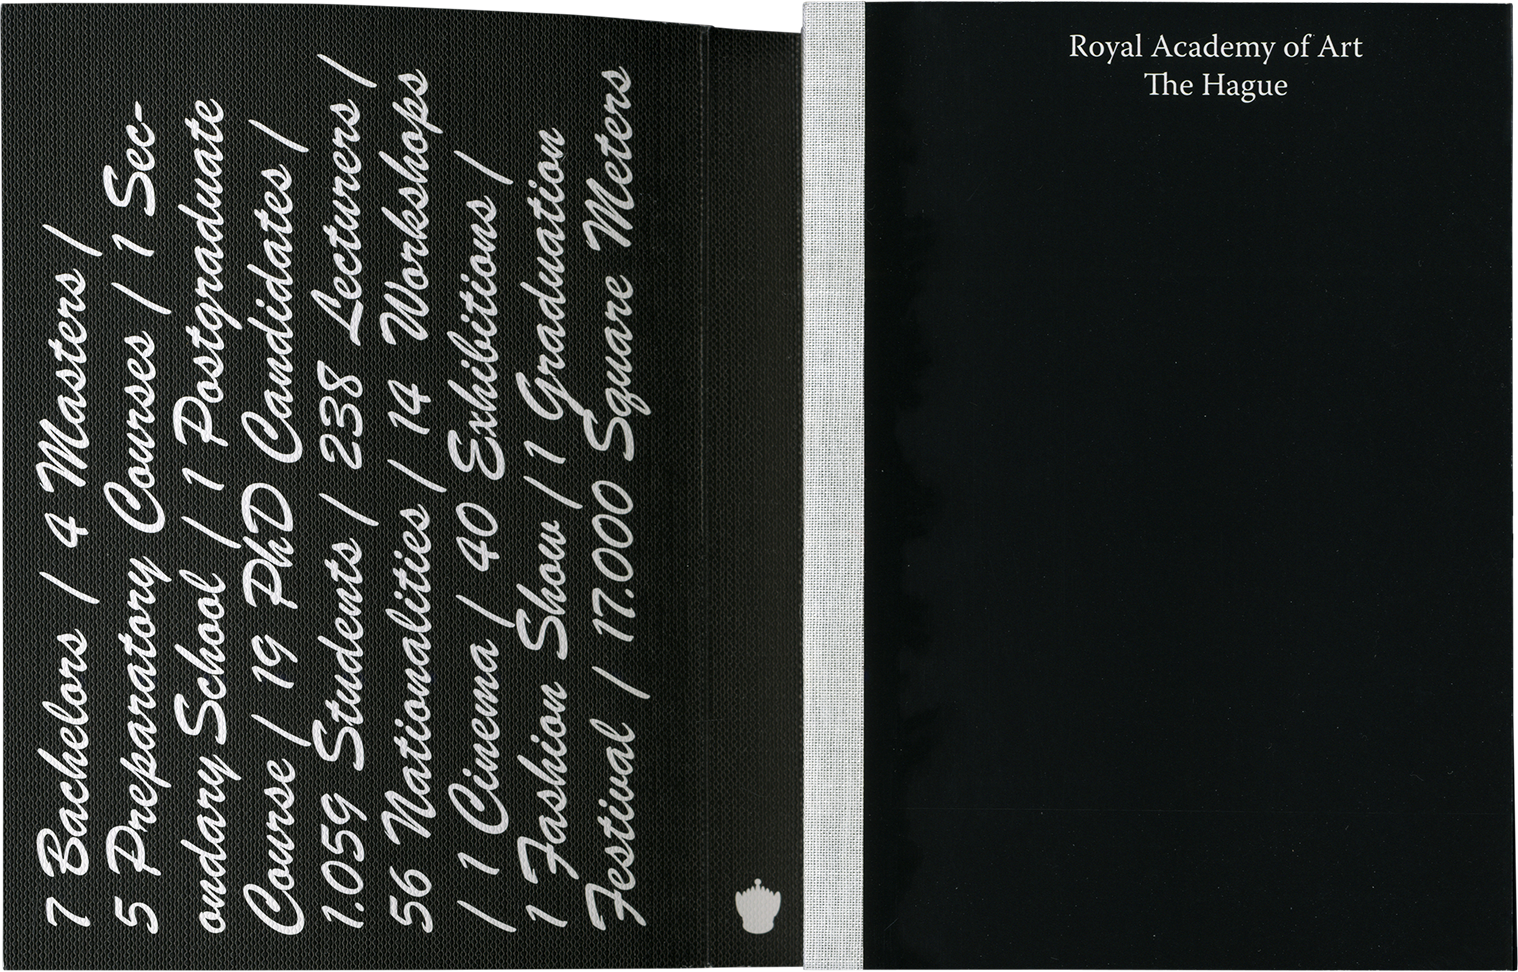 7 Bachelors / 4 Masters /
5 Preparatory Courses / 1 Sec-
ondary School / 1 Postgraduate
Course / 19 PhD Candidates /
1.059 Students / 238 Lecturers /
56 Nationalities / 14 Workshops
/ 1 Cinema / 40 Exhibitions /
1 Fashion Show / 1 Graduation
Festival / 17.000 Square Meters
Royal Academy of Art
The Hague